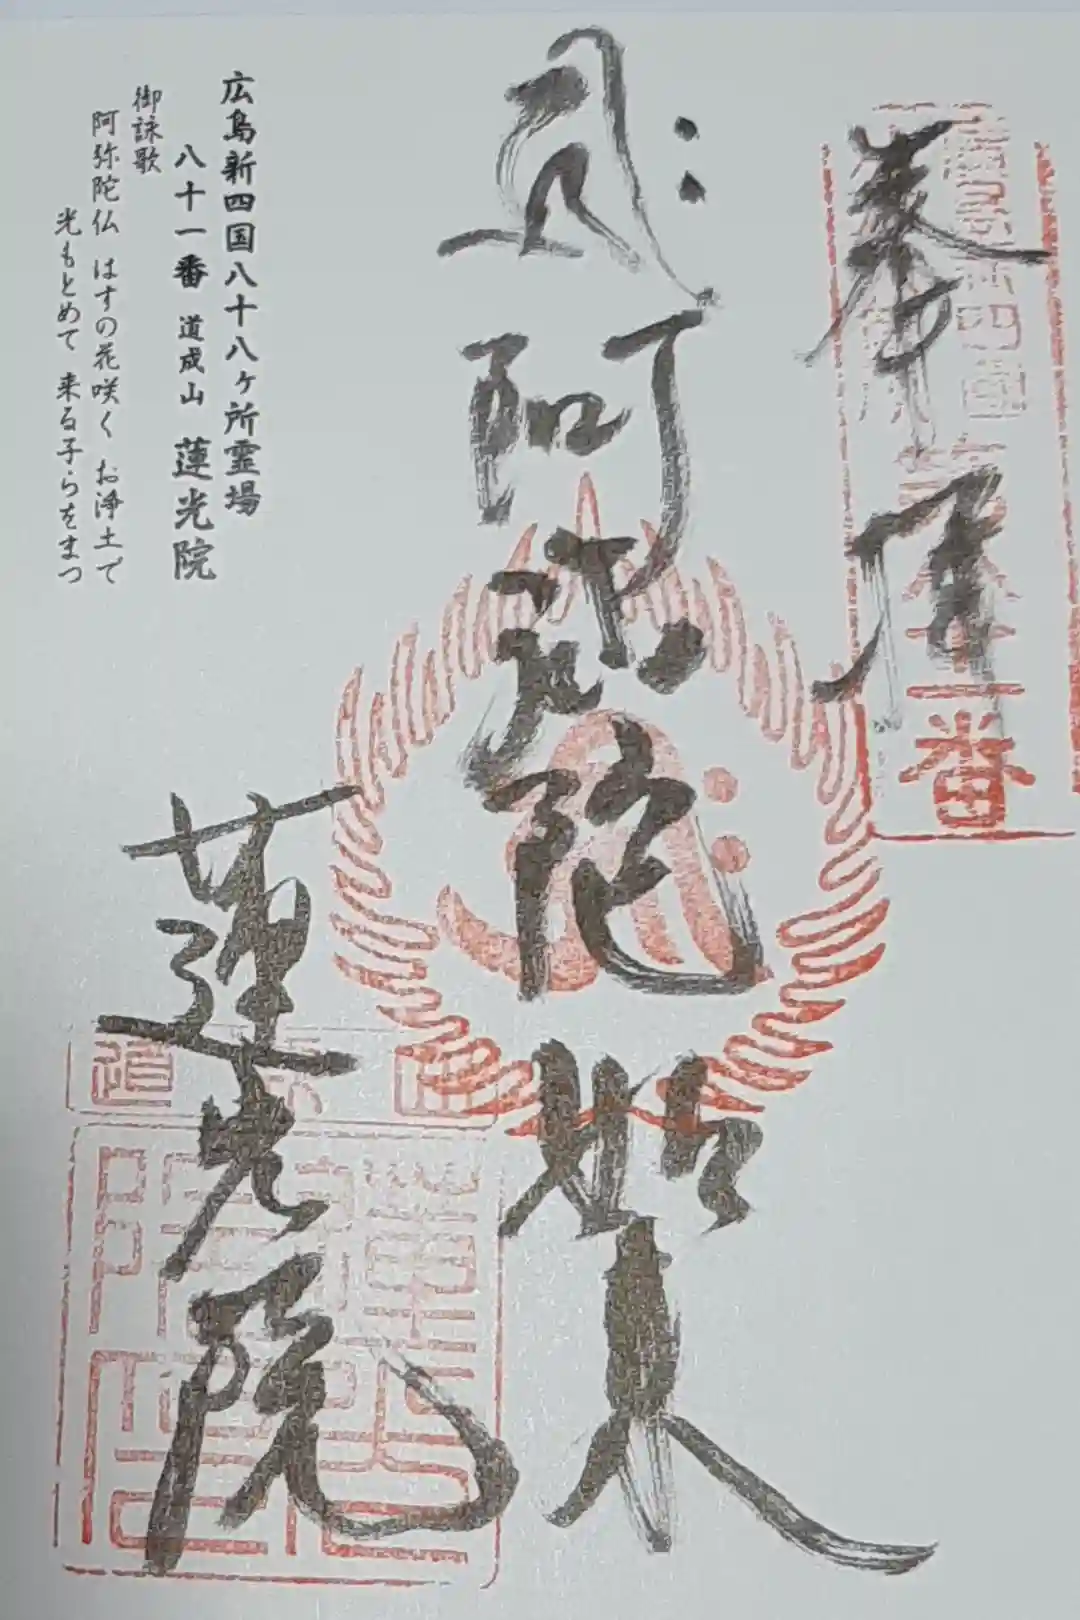 奉拝
広島新四国
八十一番
阿弥陀如来
蓮光院
広島新四国八十八ヶ所霊場
八十一番 道成山 蓮光院
御詠歌
阿弥陀仏 はすの花咲く お浄土で
光もとめて 来る子らをまつ